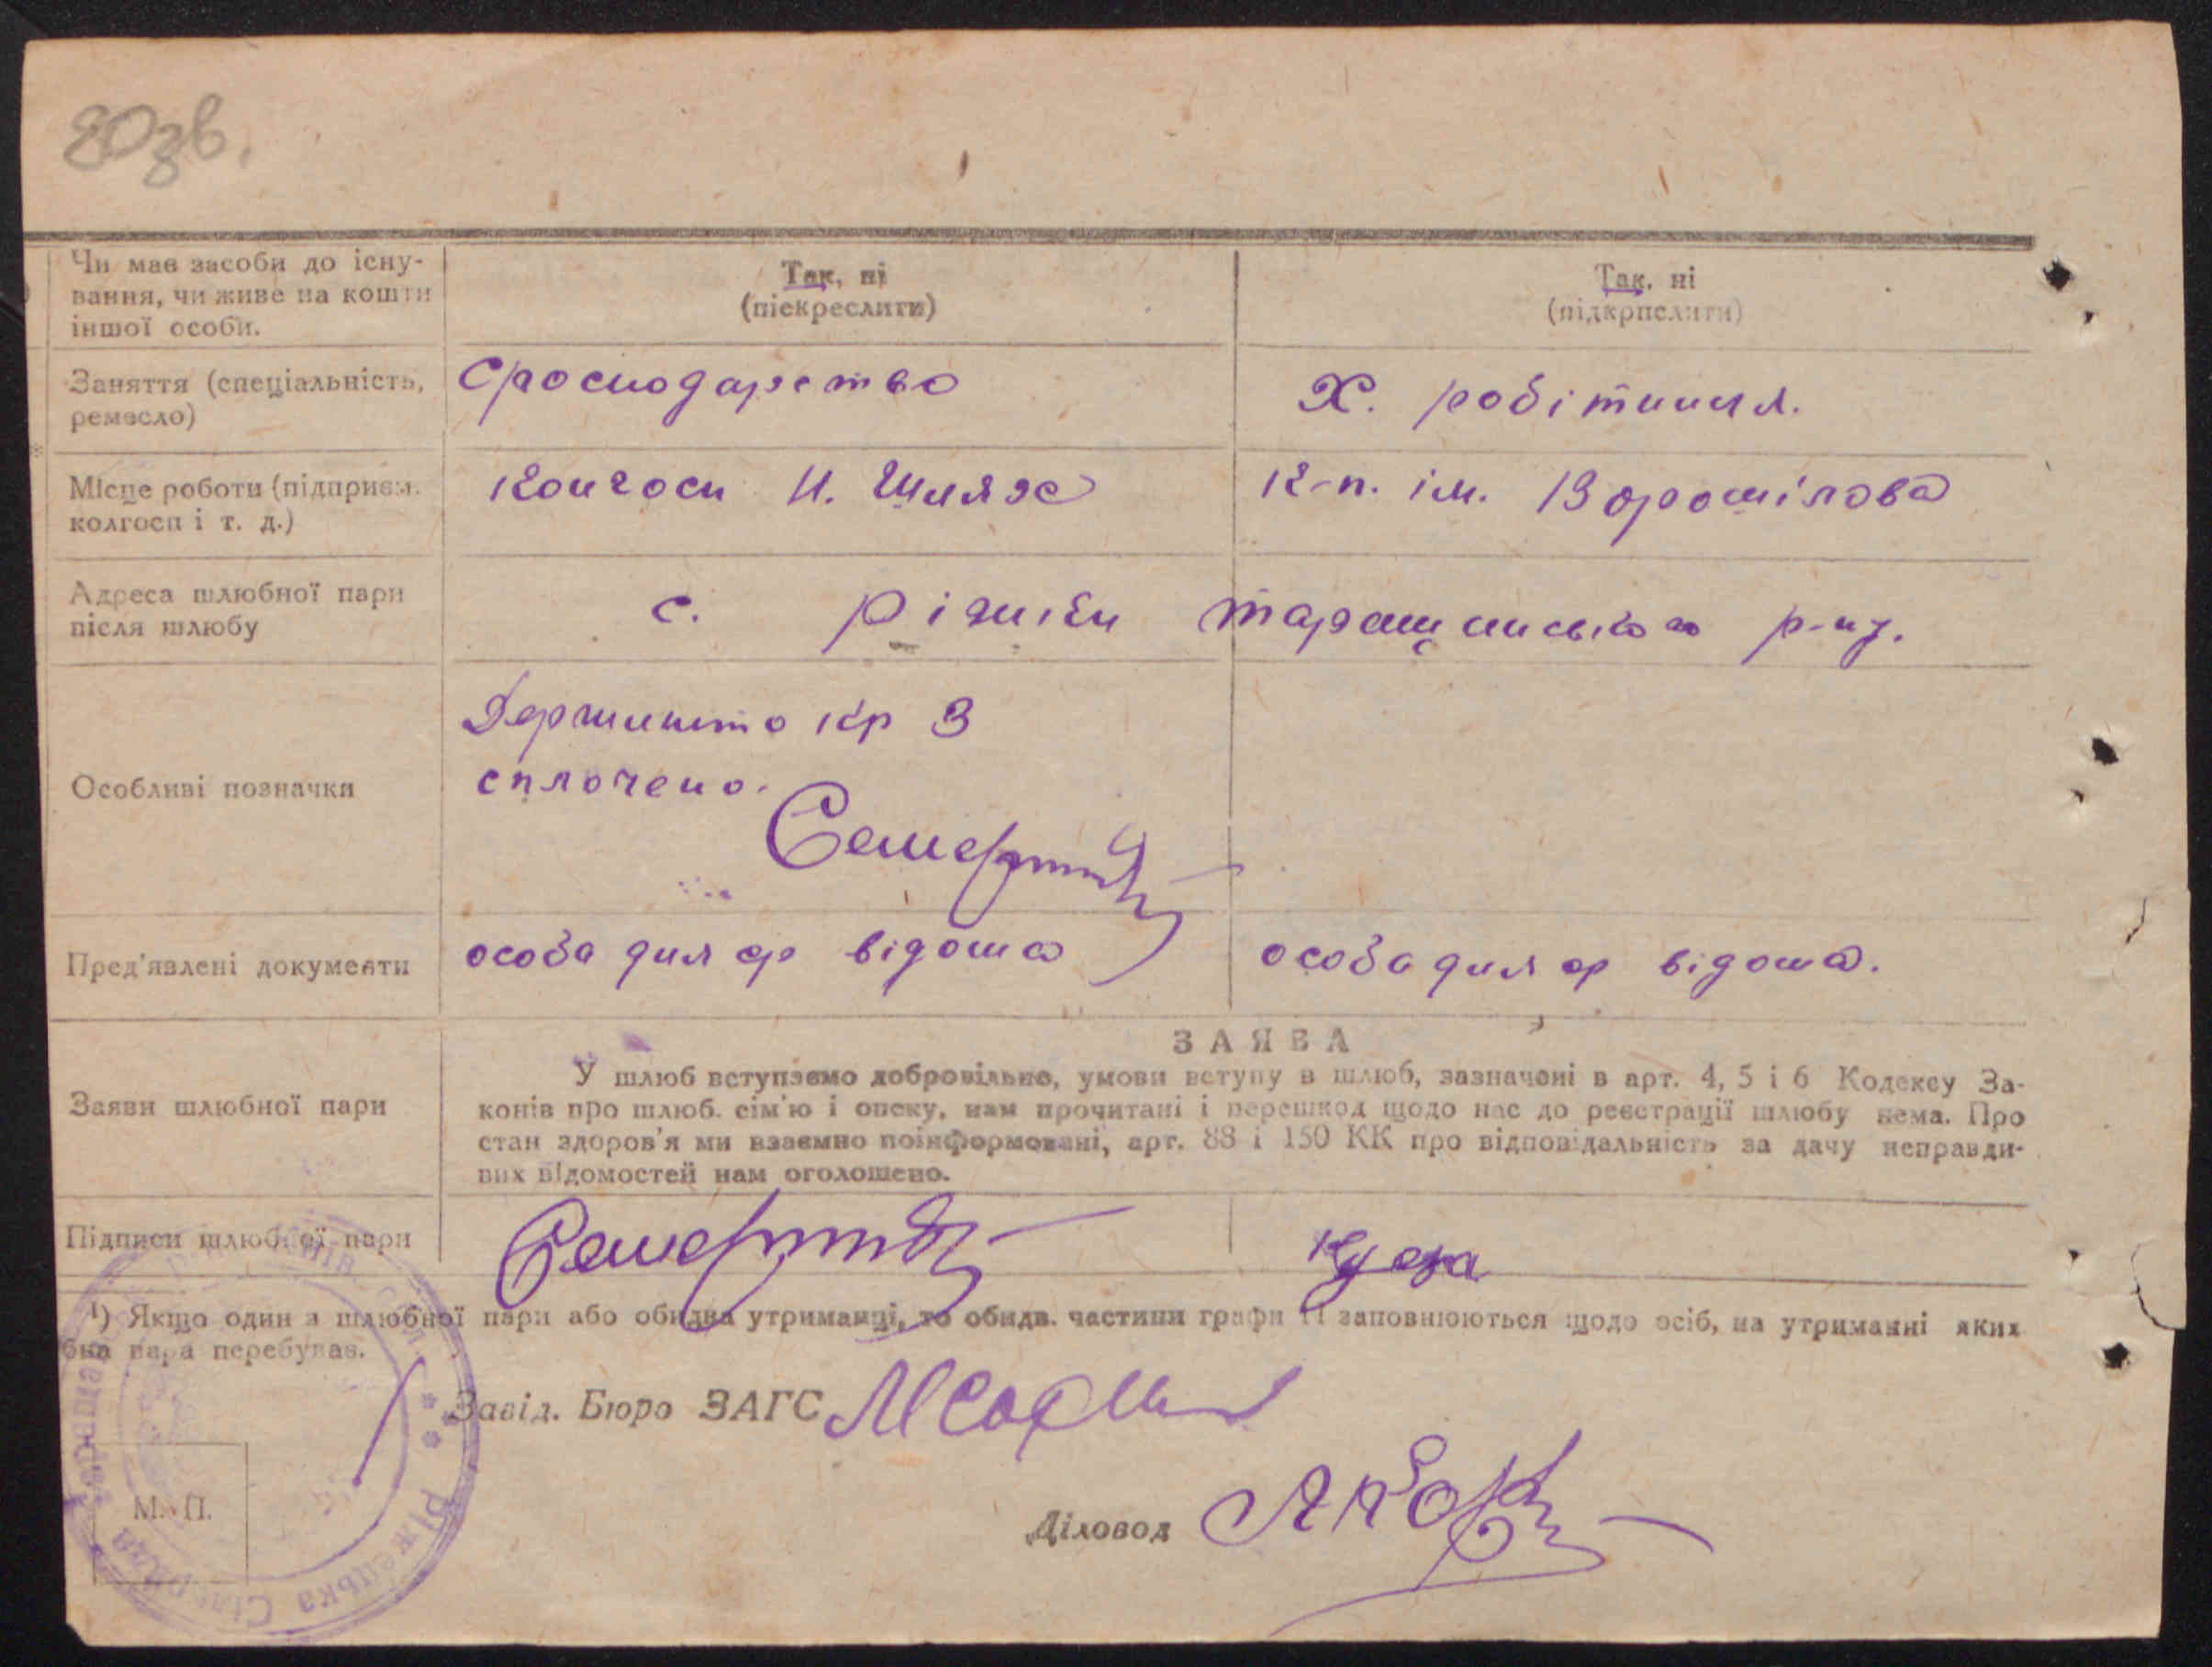 80зв.
Чи має засоби до існу-
вання, чи живе на кошти
іншої особи.
Так, ні
(піекреслити)
Так, ні
(підкрпслити)
Заняття (спеціальність,
ремесло)
Х. робітниця.
Місце роботи (підприєм.
колгосп і т. д.)
колгосп Н. Шлях
к-п. ім. Ворошілова
Адреса шлюбної пари
після шлюбу
с. Ріжки Таращанського р-ну.
Особливі позначки
Держмито кр 3
сплочено.
Пред'явлені документи
особа для ср відома
особа для ср відома.
ЗАЯВА
Заяви шлюбної пари
У шлюб вступаємо добровільно, умови вступу в шлюб, зазначені в арт. 4, 5 і 6 Кодексу За-
конів про шлюб. сім'ю і опеку, нам прочитані і перешкод щодо нас до реєстрації шлюбу нема. Про
стан здоров'я ми взаємно поінформовані, арт. 88 і 150 КК про відповідальність за дачу неправди-
вих відомостей нам оголошено.
Підписи шлюбної пари
¹) Якщо один з шлюбної пари або обидва утриманці, то обидв. частини графи 11 заповнюються щодо осіб, на утриманні яких
бна пара перебуває.
Завід. Бюро ЗАГС
М. П.
Діловод
Ріжецька Сільрада